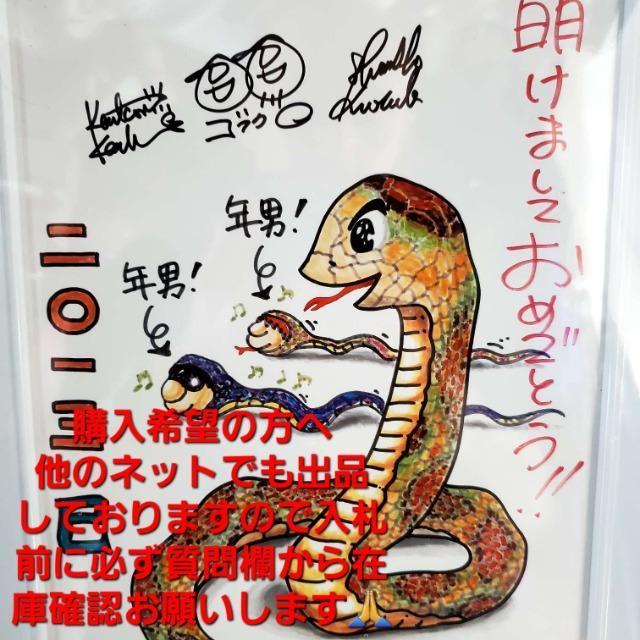 明けましておめでとう!!
年男!
年男!
二〇一三
購入希望の方へ
他のネットでも出品
しておりますので入札
前に必ず質問欄から在
庫確認お願いします🙏